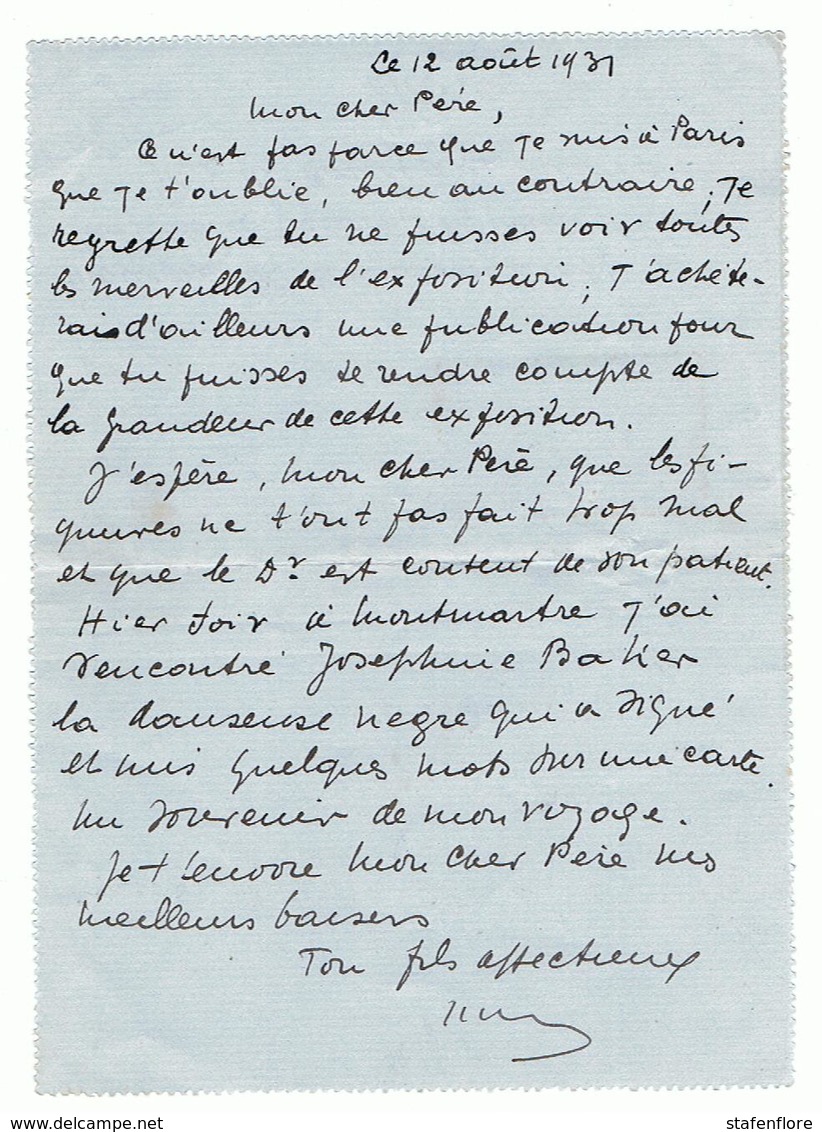 Le 12 août 1931
Mon cher Père,
Ce n'est pas parce que je suis à Paris
que je t'oublie, bien au contraire, je
regrette que tu ne puisses voir toutes
les merveilles de l'exposition, j'achète-
rais d'ailleurs une publication pour
que tu puisses te rendre compte de
la grandeur de cette exposition.
J'espère, mon cher Père, que les pi-
quures ne t'ont pas fait trop mal
et que le Dr est content de son patient.
Hier soir à Montmartre j'ai
rencontré Josephine Baker
la danseuse negre qui a signé
et mis quelques mots sur une carte.
un souvenir de mon voyage.
Je t'envoie mon cher Père mes
meilleurs baisers
Ton fils affectieux
delcampe.net
stafenflore